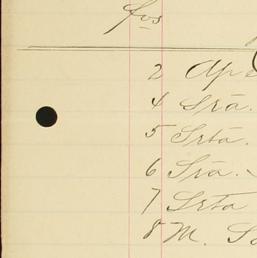 fvs
2 Ap
4 Sra.
5 Srta.
6 Sra.
7 Srta
8 M.